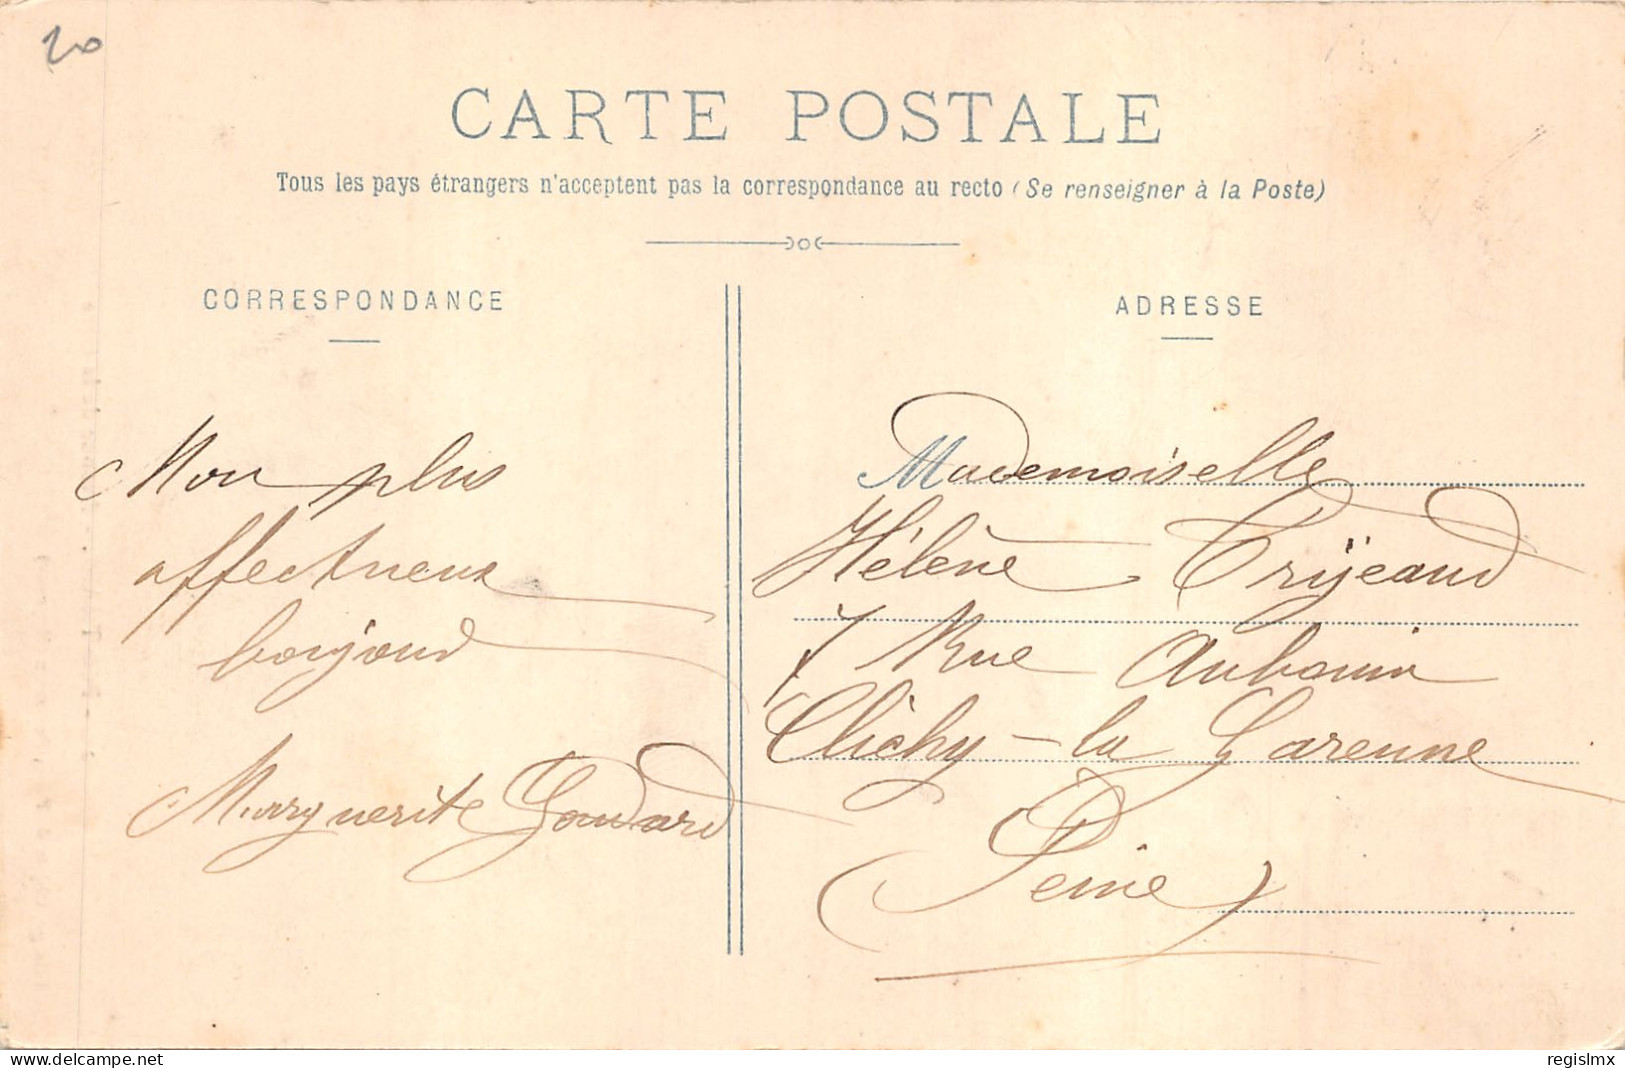 20
CARTE POSTALE
Tous les pays étrangers n'acceptent pas la correspondance au recto (Se renseigner à la Poste)
CORRESPONDANCE
Mon plus
affectueux
bonjour
Marguerite Goudard
ADRESSE
Mademoiselle
Hélène
7 Rue Aubouin
Clichy-la Garenne
(Seine)
www.delcampe.net
regislmx